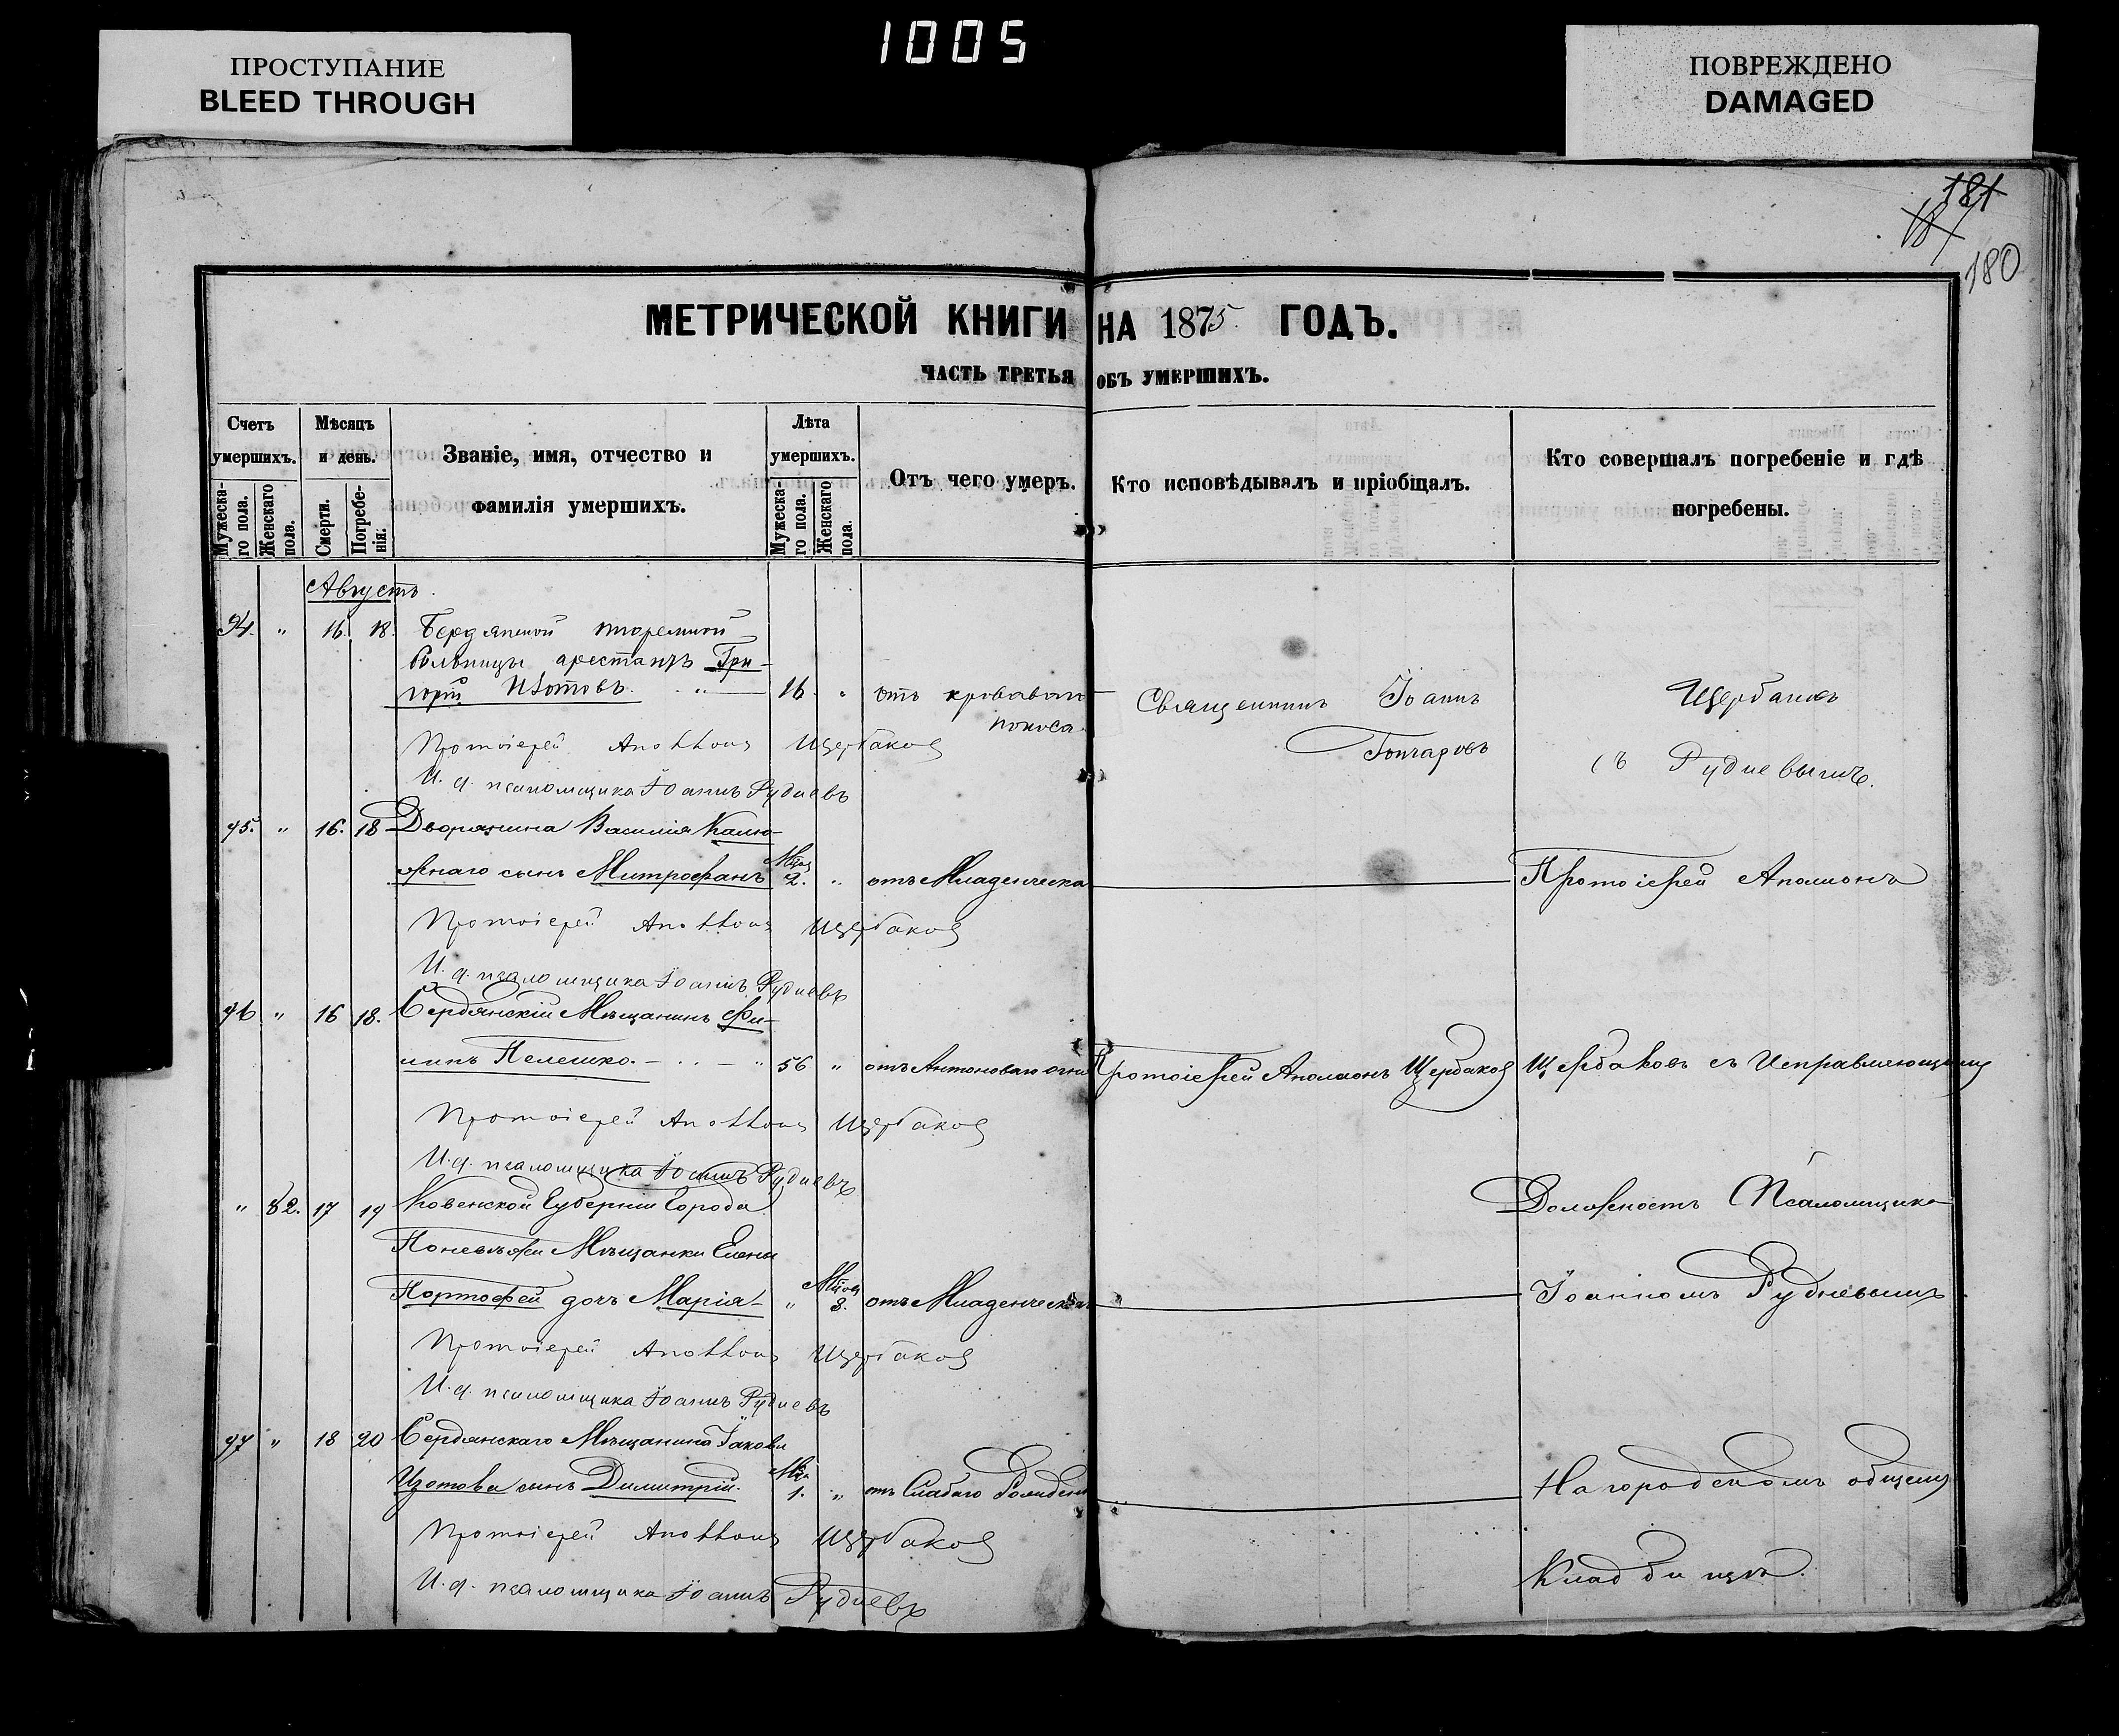 1005
ПРОСТУПАНИЕ
BLEED THROUGH
ПОВРЕЖДЕНО
DAMAGED
181
187
180
МЕТРИЧЕСКОЙ КНИГИ НА 1875 ГОДЪ.
ЧАСТЬ ТРЕТЬЯ ОБЪ УМЕРШИХЪ.
Счетъ умершихъ.
Мужеска-го пола.
Женскаго пола.
Мѣсяцъ и день.
Смерти.
Погребе-нія.
Званіе, имя, отчество и
фамилія умершихъ.
Лѣта умершихъ.
Мужеска-го пола.
Женскаго пола.
Отъ чего умеръ.
Кто исповѣдывалъ и пріобщалъ.
Кто совершалъ погребеніе и гдѣ
погребены.
Августъ.
94. " 16. 18. Бердянской тюремной
больницы арестантъ Гри-
горій Изотовъ. " 16. " отъ кроваваго Священникъ Іоаннъ Щербаковъ
поноса.
Гончаровъ
Протоіерей Аполлонъ Щербаковъ
съ Рудневымъ.
И. д. псаломщика Іоаннъ Рудневъ
95. " 16. 18 Дворянина Василія Калю-
жнаго сынъ Митрофанъ Мѣсяц 2. " отъ Младенческа Протоіерей Аполлонъ
Протоіерей Аполлонъ Щербаковъ
И. д. псаломщика Іоаннъ Рудневъ
96 " 16 18. Бердянскій Мѣщанинъ Фи-
липъ Пелешко. " 56 " отъ Антонова огня Протоіерей Аполлонъ Щербаковъ Щербаковъ съ Исправляющимъ
Протоіерей Аполлонъ Щербаковъ
И. д. псаломщика Іоаннъ Рудневъ
" 82. 17 19 Ковенской Губерніи Города Должность Псаломщика
Поневѣжи Мѣщанки Елены
Портофей дочь Марія " 8. отъ Младенческа Іоанномъ Рудневымъ
Протоіерей Аполлонъ Щербаковъ
И. д. псаломщика Іоаннъ Рудневъ
97 " 18 20 Бердянскаго Мѣщанина Іакова
Изотова сынъ Димитрій. 1. " отъ Слабаго Рожден На городскомъ общемъ
Протоіерей Аполлонъ Щербаковъ
Кладбищѣ.
И. д. псаломщика Іоаннъ Рудневъ